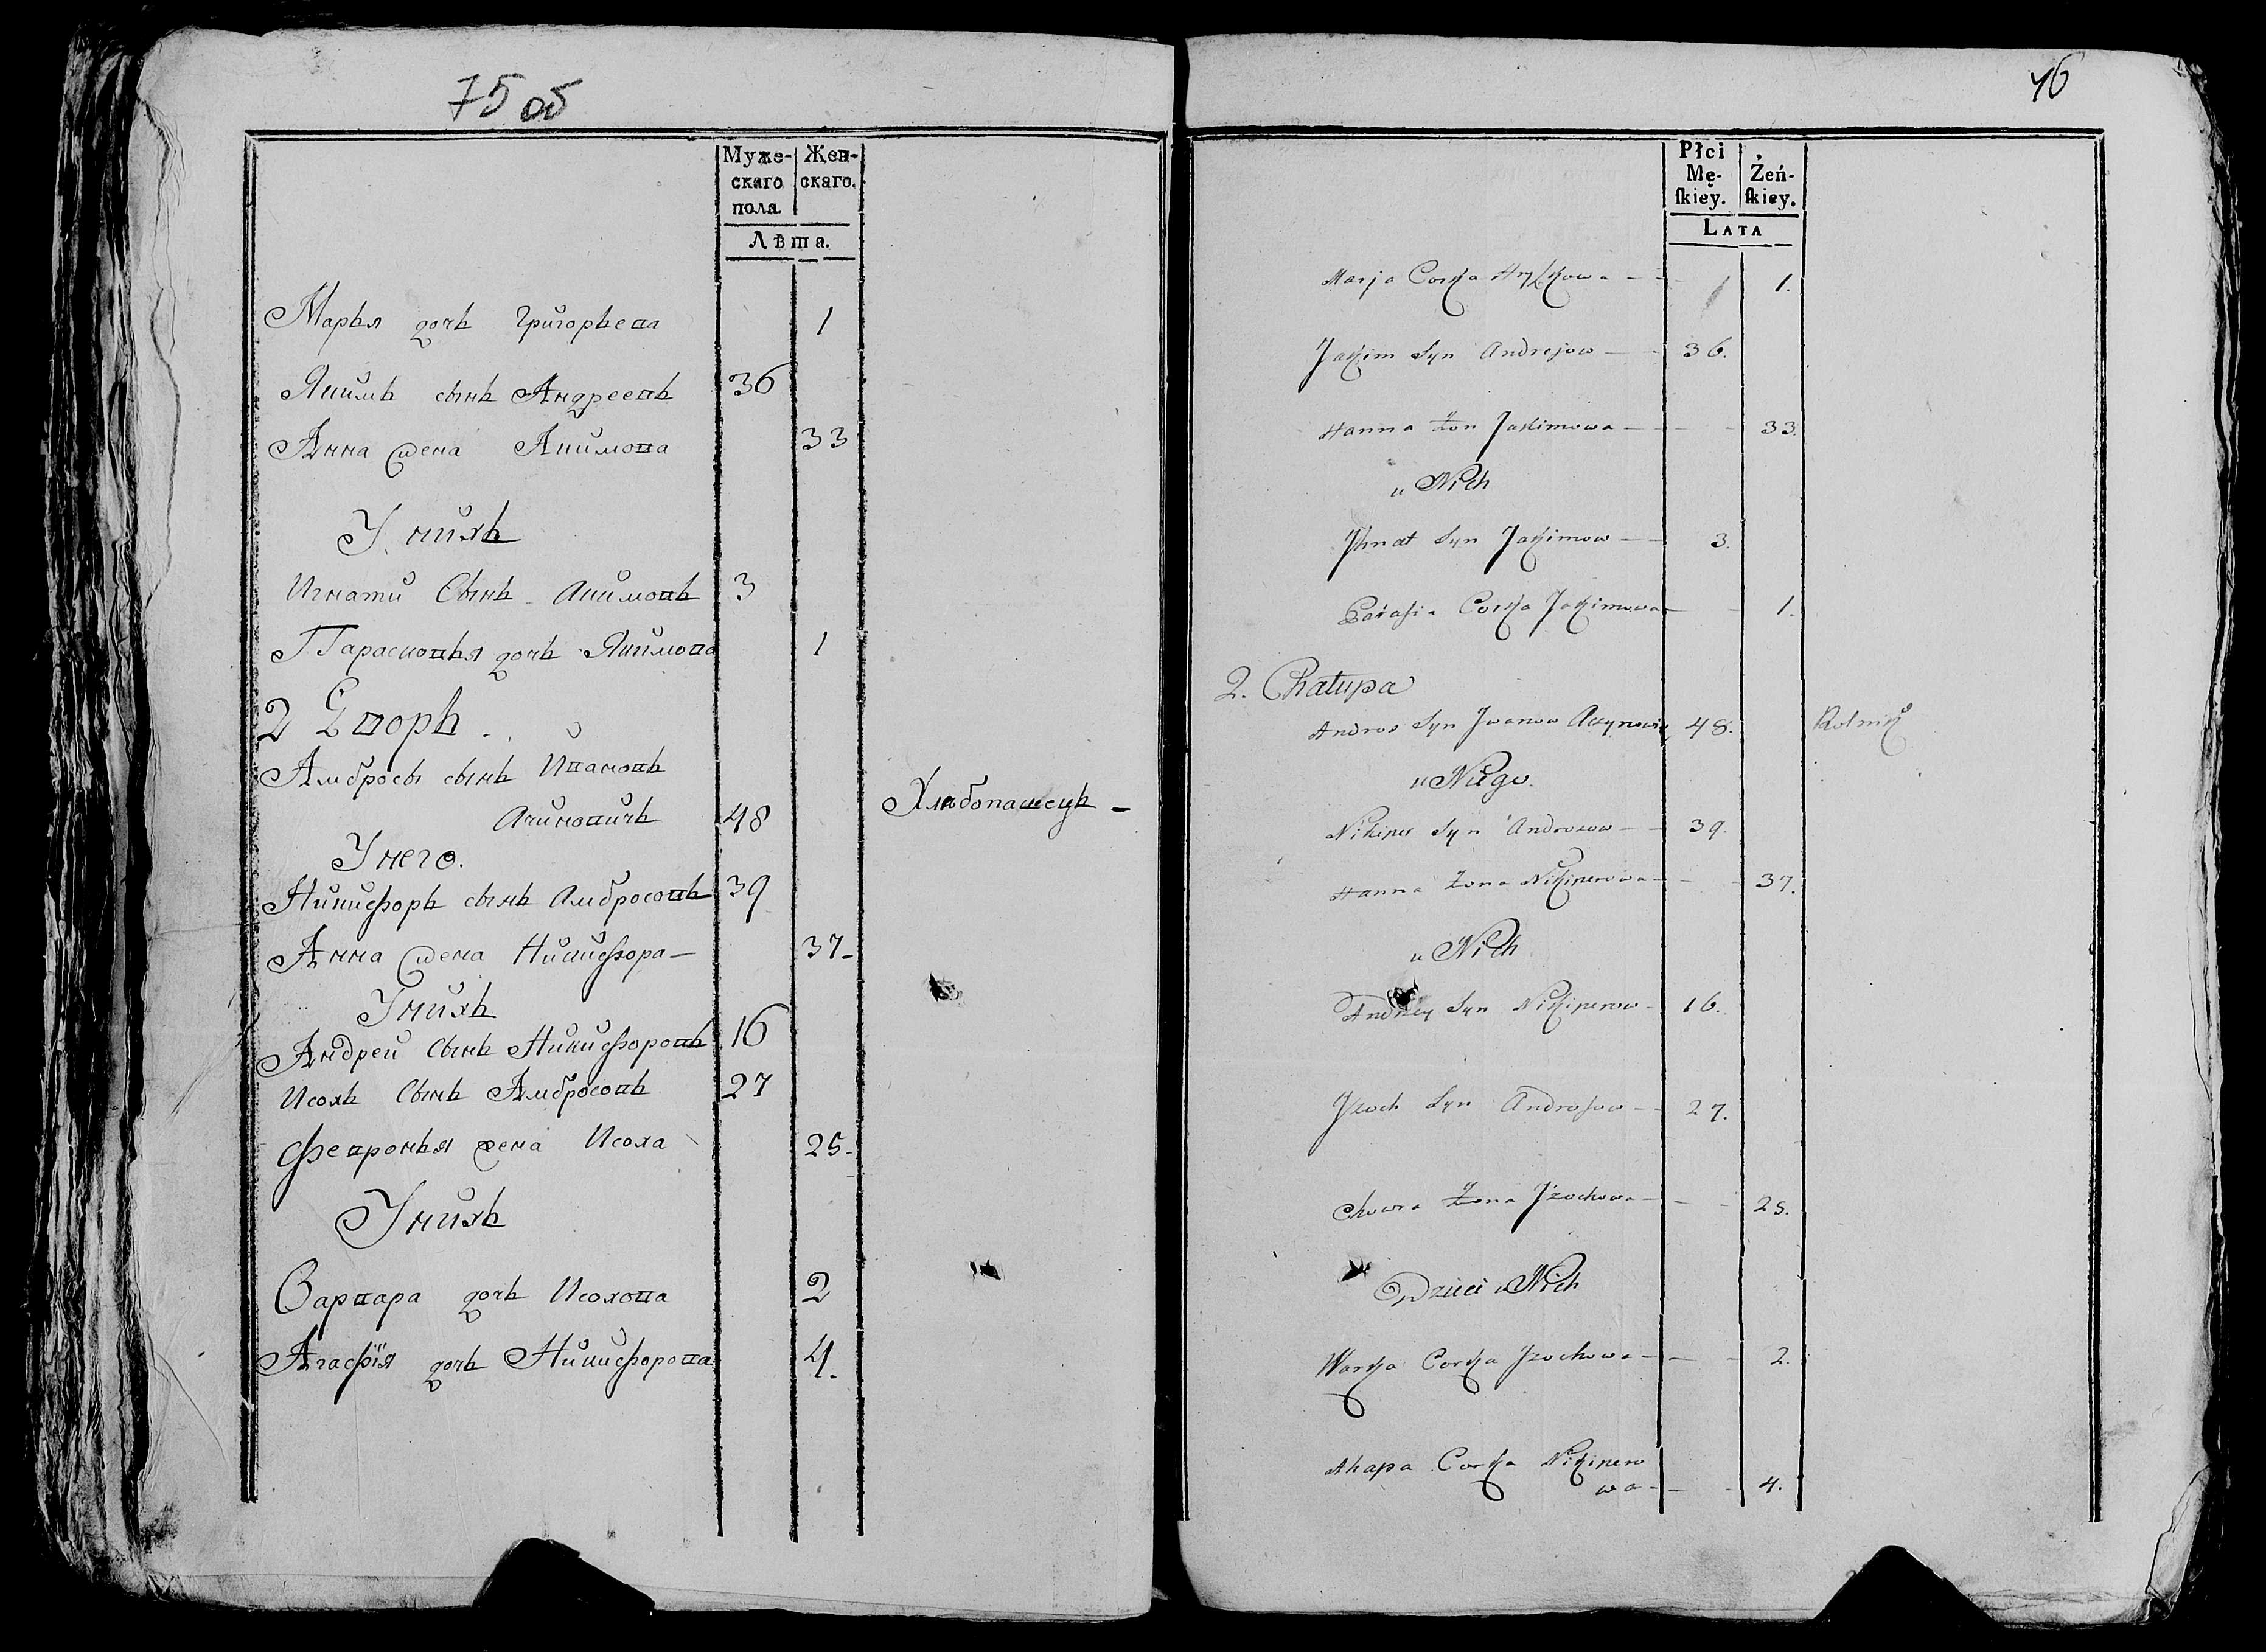 75 об
Муже-
скаго
пола.
Жен-
скаго.
Лѣта.
Марья дочь Григорьева 1
Якимъ сынъ Андреевъ 36
Анна жена Акимова 33
У нихъ
Игнати Сынъ Акимовъ 3
Парасковья дочь Якимова 1
2 Дворъ.
Амбросы сынъ Ивановъ
Ачиновичъ 48 Хлѣбопашецъ
У него.
Никифоръ сынъ Амбросовъ 39
Анна жена Никифора 37
У нихъ
Андреи Сынъ Никифоровъ 16
Исохъ Сынъ Амбросовъ 27
Февронья жена Исоха 25
У нихъ
Варвара дочь Исохова 2
Агафія дочь Никифорова 4.
76
Płci
Mę-
skiey.
Żeń-
skiey.
Lata
Marja Corka 1.
Jakim Syn Andrejow 36.
Hanna Żon Jakimowa 33.
u Nich
Jhnat Syn Jakimow 3.
Parasia Corka Jakimowa 1.
2. Chałupa
Andros Syn Jwanow 48. Rolnik
u Niego.
Nikiper Syn Androsow 39.
Hanna Żona Nikiperowa 37.
u Nich
Andrzey Syn Nikiperow 16.
Jzoch Syn Androsow 27.
Chowra Żona Jzochowa 25.
Dzieci u Nich
Warka Corka Jzochowa 2.
Ahapa Corka Nikipero
wa 4.